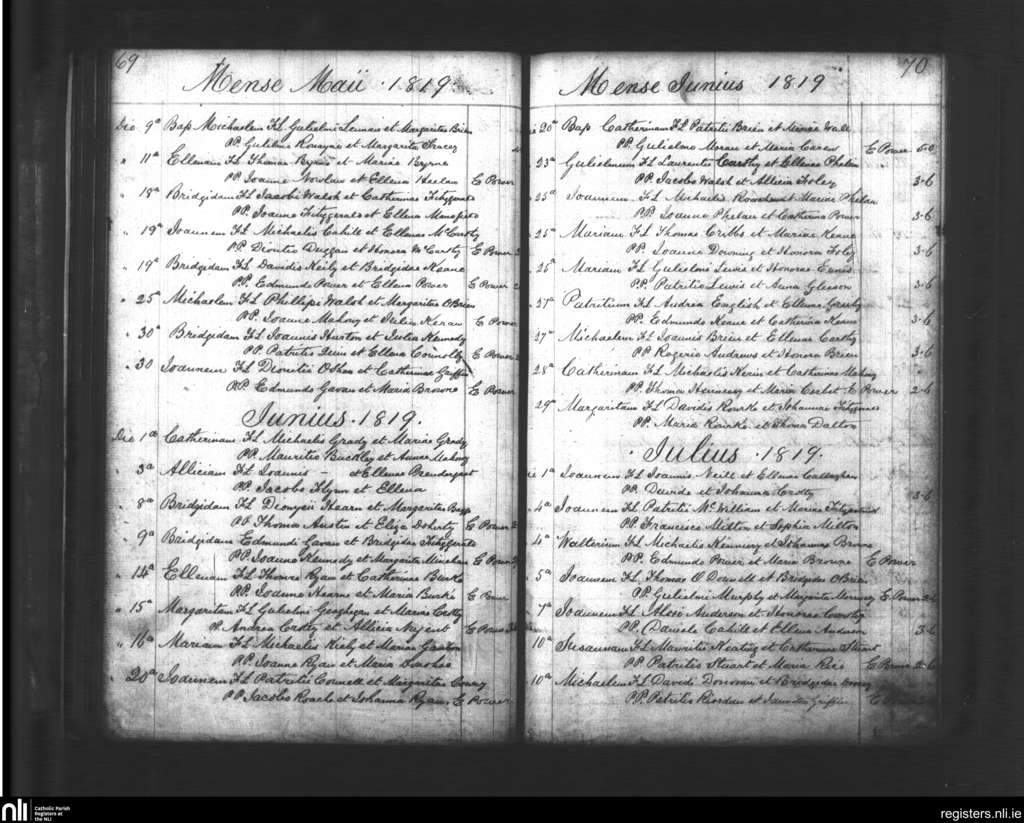 69
Mense Maii 1819
Die 9a Bap Michaelem FL Gulielmi et Margaritae Brien
PP. Gulielmo et Margarita
" 11a Ellenam FL Thomae Byrne et Mariae Byrne
PP. Joanne Nowlan et Ellena Heelan E Power
" 18a Bridgidam FL Jacobi Walsh et Catherinae Fitzgerald
PP. Joanne Fitzgerald et Ellena
" 19a Joannem FL Michaelis Cahill et Ellenae McCarthy
PP. Duggan et Honora McCarthy E Power
" 19a Bridgidam FL Davidis Keily et Bridgidae Keane
PP. Edmundo Power et Ellena Power E Power
" 25a Michaelem FL Phillipi Walsh et Margaritae O'Brien
PP. Joanne Mahony et Julia E Power
" 30a Bridgidam FL Joannis et Julia Kennedy
PP. Patritio et Ellena Connolly E Power
" 30 Joannem FL et Catherinae Griffin
PP. Edmundo Gavan et Maria Browne E Power
Junius 1819.
Die 1a Catherinam FL Michaelis Grady et Mariae Grady
PP. Mauritio Buckley et Anna Mahony
" 3a Alliciam FL Joannis — et Ellenae Prendergast
PP. Jacobo Flynn et Ellena
" 8a Bridgidam FL Dionysii Hearn et Margaritae
PP. Thoma Austin et Eliza Doherty E Power
" 9a Bridgidam Edmundi Gavan et Bridgidae Fitzgerald
PP. Joanne Kennedy et Margarita E Power
" 14a Ellenam FL Thomae Ryan et Catherinae Burke
PP. Joanne Hearne et Maria Burke E Power
" 15a Margaritam FL Gulielmi Geoghegan et Mariae Crotty
PP. Andrea Crotty et Allicia Nugent E Power
" 16a Mariam FL Michaelis Kiely et Mariae
PP. Joanne Ryan et Maria
" 20a Joannem FL Patritii Connell et Margaritae
PP. Jacobo Roach et Johanna Ryan E Power
70
Mense Junius 1819
20a Bap Catherinam FL Patritii Brien et Mariae Wall
PP. Gulielmo Moran et Maria Carew E Power 5-0
23a Gulielmum FL Laurentii Carthy et Ellenae Phelan
PP. Jacobo Walsh et Allicia Foley 3-6
25a Joannem FL Michaelis et Mariae Phelan
PP. Joanne Phelan et Catherina Power 3-6
25a Mariam FL Thomae Cribbs et Mariae Keane
PP. Joanne Downing et Honora Foley 3-6
25a Mariam FL Gulielmi Lewis et Honorae
PP. Patritio Lewis et Anna Gleeson 3-6
27a Patritium FL Andrea English et Ellenae
PP. Edmundo Keane et Catherina Keane 3-6
27a Michaelem FL Joannis Brien et Ellenae Carthy
PP Rogerio Andrews et Honora Brien 3-6
28a Catherinam FL Michaelis et Catherinae Mahony
PP. Thoma Hennessy et Maria Corbet E Power 2-6
29a Margaritam FL Davidis Rourke et Johannae Fitzgerald
PP. Maria Rourke et Thoma Dalton
Julius 1819.
1a Joannem FL Joannis Neill et Ellenae Callaghan
PP. et Johanna Crotty 3-6
4a Joannem FL Patritii McWilliam et Mariae Fitzgerald
PP. Francisco Milton et Sophia Milton
4a Walterium FL Michaelis et Johannae Browne
PP. Edmundo Power et Maria Browne E Power
5a Joannem FL Thomae O Donnell et Bridgidae O'Brien
PP. Gulielmi Murphy et Margarita E Power
7a Joannem FL Anderson et Honorae
PP. Daniele Cahill et Ellena 3-6
10a Susannam FL Mauritii Keating et Catherinae Stuart
PP Patritio Stuart et Maria Rice E Power 2-6
10a Michaelem FL Davidi Donovan et Bridgidae
PP. Patritio Riordan et Griffin E Power
nli
Catholic Parish
Registers at
the NLI
registers.nli.ie